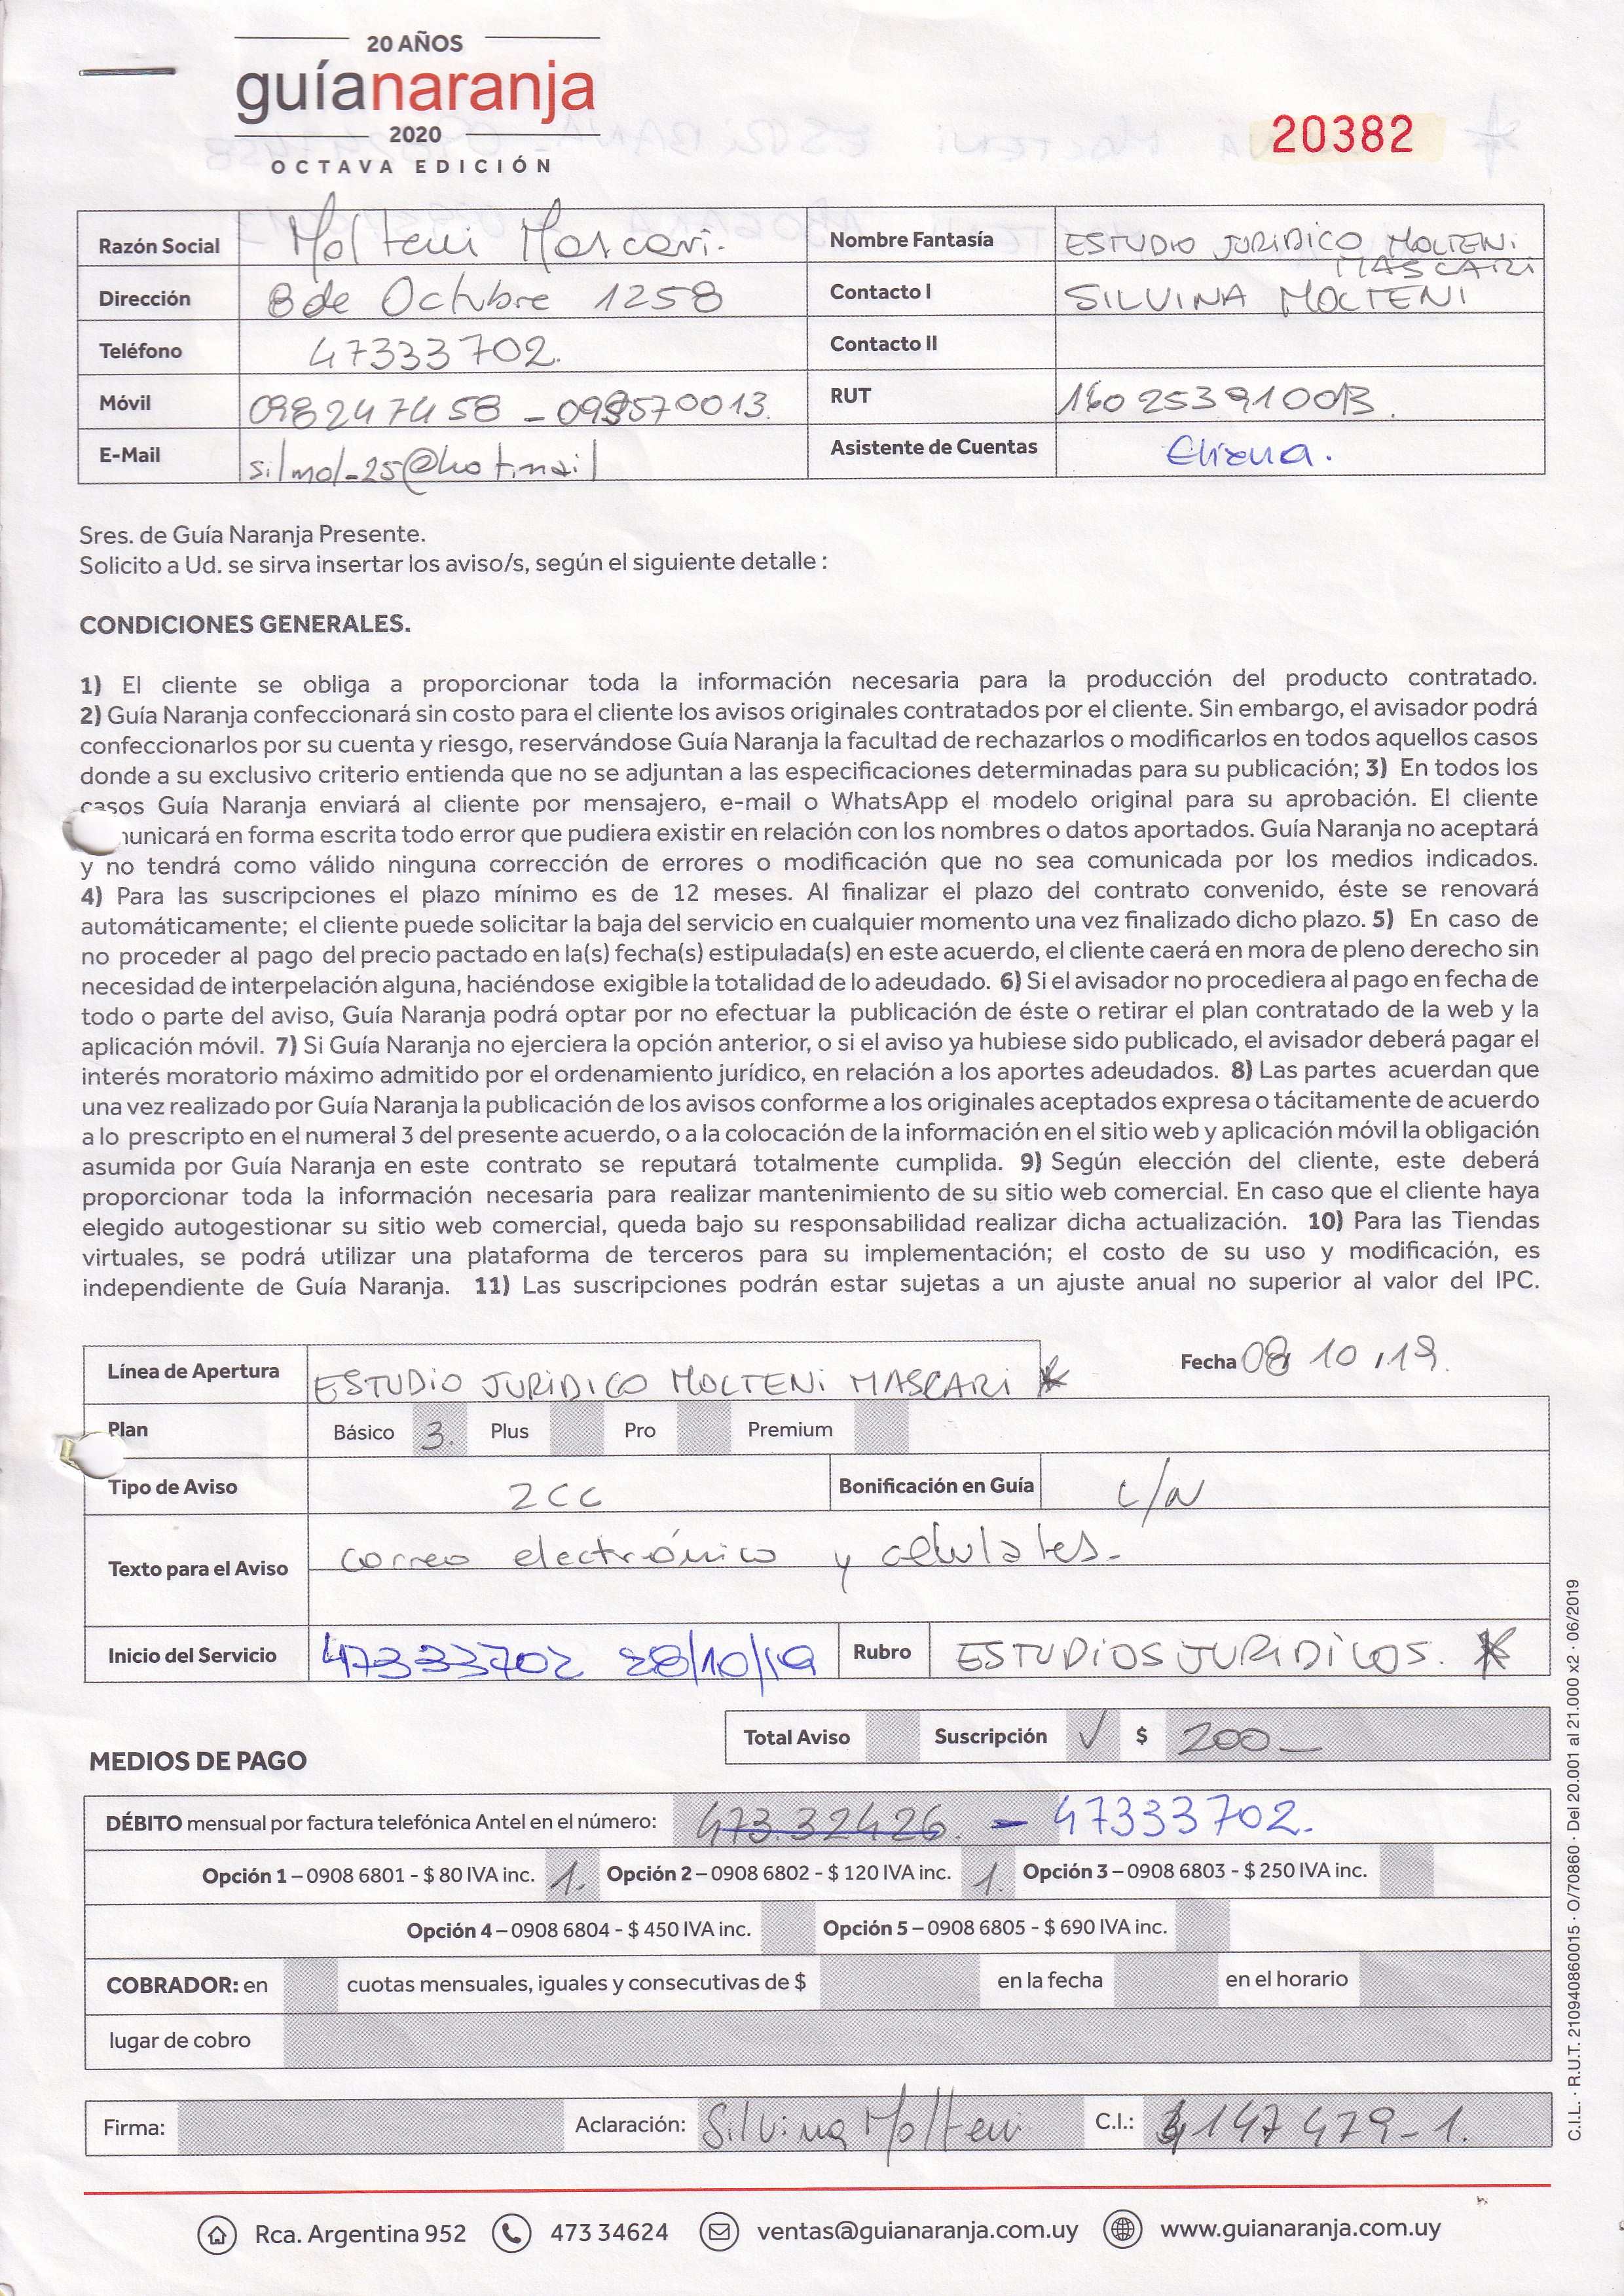 20 AÑOS
guíanaranja
2020
OCTAVA EDICIÓN
20382
Razón Social Molteni Mascari. Nombre Fantasía ESTUDIO JURIDICO MOLTENI MASCARI
Dirección 8 de Octubre 1258 Contacto I SILVINA MOLTENI
Teléfono 47333702. Contacto II
Móvil 098247458 - 099570013. RUT 160253910013.
E-Mail silmol-25@hotmail Asistente de Cuentas Eliana.
Sres. de Guía Naranja Presente.
Solicito a Ud. se sirva insertar los aviso/s, según el siguiente detalle :
CONDICIONES GENERALES.
1) El cliente se obliga a proporcionar toda la información necesaria para la producción del producto contratado.
2) Guía Naranja confeccionará sin costo para el cliente los avisos originales contratados por el cliente. Sin embargo, el avisador podrá
confeccionarlos por su cuenta y riesgo, reservándose Guía Naranja la facultad de rechazarlos o modificarlos en todos aquellos casos
donde a su exclusivo criterio entienda que no se adjuntan a las especificaciones determinadas para su publicación; 3) En todos los
casos Guía Naranja enviará al cliente por mensajero, e-mail o WhatsApp el modelo original para su aprobación. El cliente
municará en forma escrita todo error que pudiera existir en relación con los nombres o datos aportados. Guía Naranja no aceptará
y no tendrá como válido ninguna corrección de errores o modificación que no sea comunicada por los medios indicados.
4) Para las suscripciones el plazo mínimo es de 12 meses. Al finalizar el plazo del contrato convenido, éste se renovará
automáticamente; el cliente puede solicitar la baja del servicio en cualquier momento una vez finalizado dicho plazo. 5) En caso de
no proceder al pago del precio pactado en la(s) fecha(s) estipulada(s) en este acuerdo, el cliente caerá en mora de pleno derecho sin
necesidad de interpelación alguna, haciéndose exigible la totalidad de lo adeudado. 6) Si el avisador no procediera al pago en fecha de
todo o parte del aviso, Guía Naranja podrá optar por no efectuar la publicación de éste o retirar el plan contratado de la web y la
aplicación móvil. 7) Si Guía Naranja no ejerciera la opción anterior, o si el aviso ya hubiese sido publicado, el avisador deberá pagar el
interés moratorio máximo admitido por el ordenamiento jurídico, en relación a los aportes adeudados. 8) Las partes acuerdan que
una vez realizado por Guía Naranja la publicación de los avisos conforme a los originales aceptados expresa o tácitamente de acuerdo
a lo prescripto en el numeral 3 del presente acuerdo, o a la colocación de la información en el sitio web y aplicación móvil la obligación
asumida por Guía Naranja en este contrato se reputará totalmente cumplida. 9) Según elección del cliente, este deberá
proporcionar toda la información necesaria para realizar mantenimiento de su sitio web comercial. En caso que el cliente haya
elegido autogestionar su sitio web comercial, queda bajo su responsabilidad realizar dicha actualización. 10) Para las Tiendas
virtuales, se podrá utilizar una plataforma de terceros para su implementación; el costo de su uso y modificación, es
independiente de Guía Naranja. 11) Las suscripciones podrán estar sujetas a un ajuste anual no superior al valor del IPC.
Línea de Apertura ESTUDIO JURIDICO MOLTENI MASCARI * Fecha 08 10 19.
Plan Básico 3. Plus Pro Premium
Tipo de Aviso 2CC Bonificación en Guía L/N
Texto para el Aviso correo electrónico y celulares.
Inicio del Servicio 47333702 28/10/19 Rubro ESTUDIOS JURIDICOS. *
Total Aviso Suscripción ✓ $ 200
MEDIOS DE PAGO
DÉBITO mensual por factura telefónica Antel en el número: 473.32426. - 47333702.
Opción 1 – 0908 6801 - $ 80 IVA inc. 1. Opción 2 – 0908 6802 - $ 120 IVA inc. 1. Opción 3 – 0908 6803 - $ 250 IVA inc.
Opción 4 – 0908 6804 - $ 450 IVA inc. Opción 5 – 0908 6805 - $ 690 IVA inc.
COBRADOR: en cuotas mensuales, iguales y consecutivas de $ en la fecha en el horario
lugar de cobro
Firma: Aclaración: Silvina Molteni C.I.: 3147479-1.
Rca. Argentina 952 473 34624 ventas@guianaranja.com.uy www.guianaranja.com.uy
C.I.L. · R.U.T. 210940860015 · O/70860 · Del 20.001 al 21.000 x2 · 06/2019